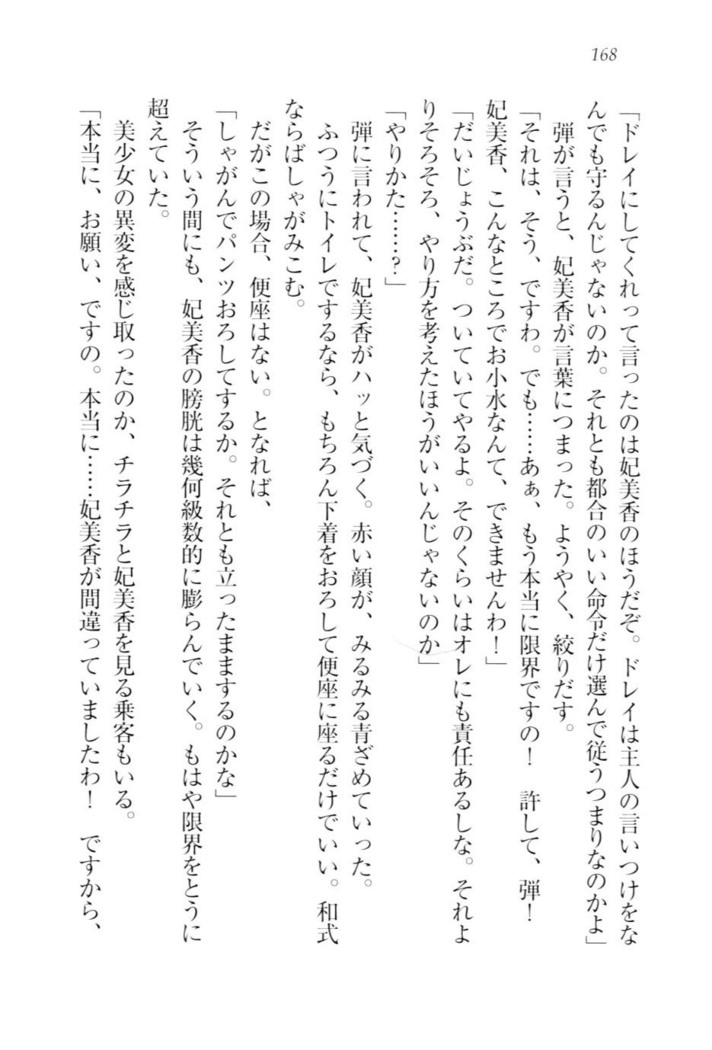 168
「ドレイにしてくれって言ったのは妃美香のほうだぞ。ドレイは主人の言いつけをな
んでも守るんじゃないのか。それとも都合のいい命令だけ選んで従うつまりなのかよ」
弾が言うと、妃美香が言葉につまった。ようやく、絞りだす。
「それは、そう、ですわ。でも……あぁ、もう本当に限界ですの！　許して、弾！
妃美香、こんなところでお小水なんて、できませんわ！」
「だいじょうぶだ。ついていてやるよ。そのくらいはオレにも責任あるしな。それよ
りそろそろ、やり方を考えたほうがいいんじゃないのか」
「やりかた……？」
弾に言われて、妃美香がハッと気づく。赤い顔が、みるみる青ざめていった。
ふつうにトイレでするなら、もちろん下着をおろして便座に座るだけでいい。和式
ならばしゃがみこむ。
だがこの場合、便座はない。となれば、
「しゃがんでパンツおろしてするか。それとも立ったままするのかな」
そういう間にも、妃美香の膀胱は幾何級数的に膨らんでいく。もはや限界をとうに
超えていた。
美少女の異変を感じ取ったのか、チラチラと妃美香を見る乗客もいる。
「本当に、お願い、ですの。本当に……妃美香が間違っていましたわ！　ですから、